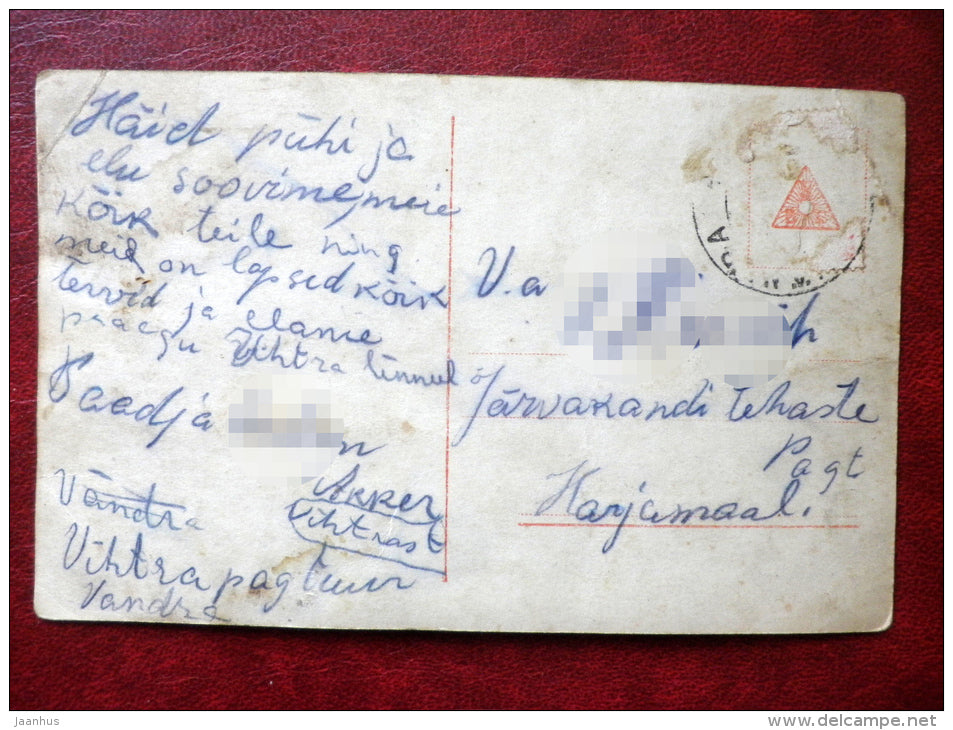 Häid pühi ja
elu soovime, meie
kõik teile ning
meil on lapsed kõik
tervid ja elame
praegu Vihtra
Saadja
Akker
Vihtrast
Vändra
Vihtra pagtuur
Vandra
V.a
Järvakandi tehaste
Pagt
Harjamaal.
Jaanhus
www.delcampe.net